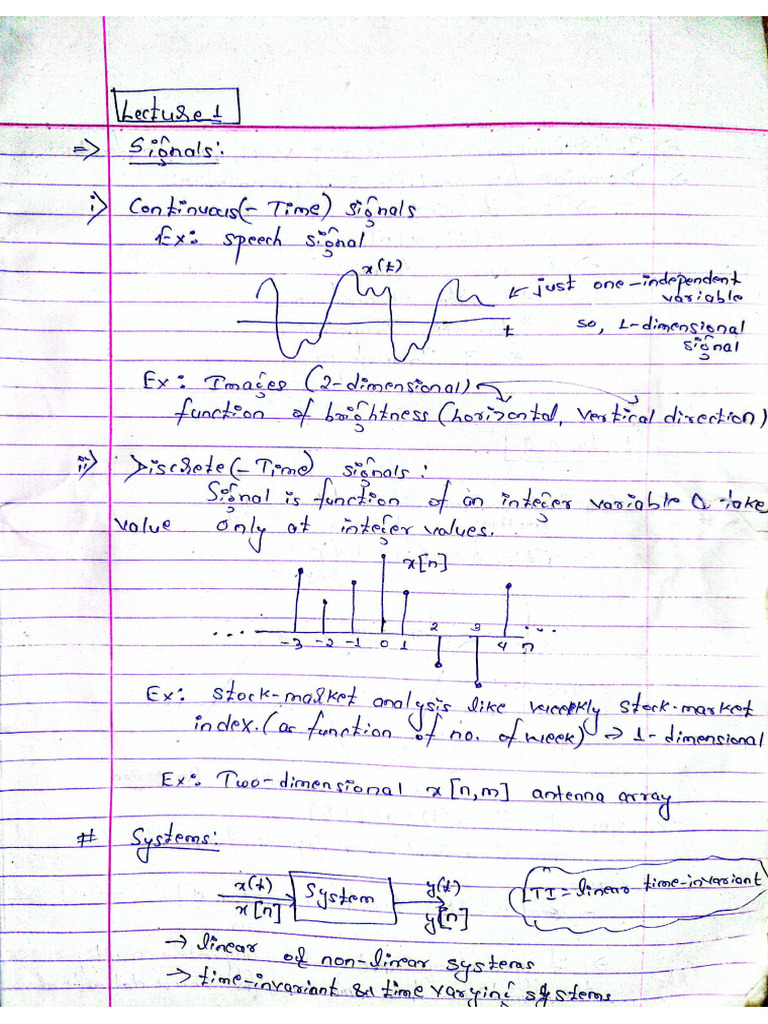 Lecture 1
=> Signals:
i) Continuous(-Time) signals
Ex: speech signal
x(t)
← just one-independent
variable
t
so, 1-dimensional
signal
Ex: Images (2-dimensional)
function of brightness (horizontal, vertical direction)
ii) Discrete(-Time) signals:
Signal is function of an integer variable & take
value only at integer values.
x[n]
.... -3 -2 -1 0 1 2 3 4 n ...
Ex: stock-market analysis like weekly stock-market
index. (as function of no. of week) → 1-dimensional
Ex: Two-dimensional x[n,m] antenna array
# Systems:
x(t) System y(t)
x[n] y[n]
LTI = linear time-invariant
→ linear or non-linear systems
→ time-invariant or time varying systems